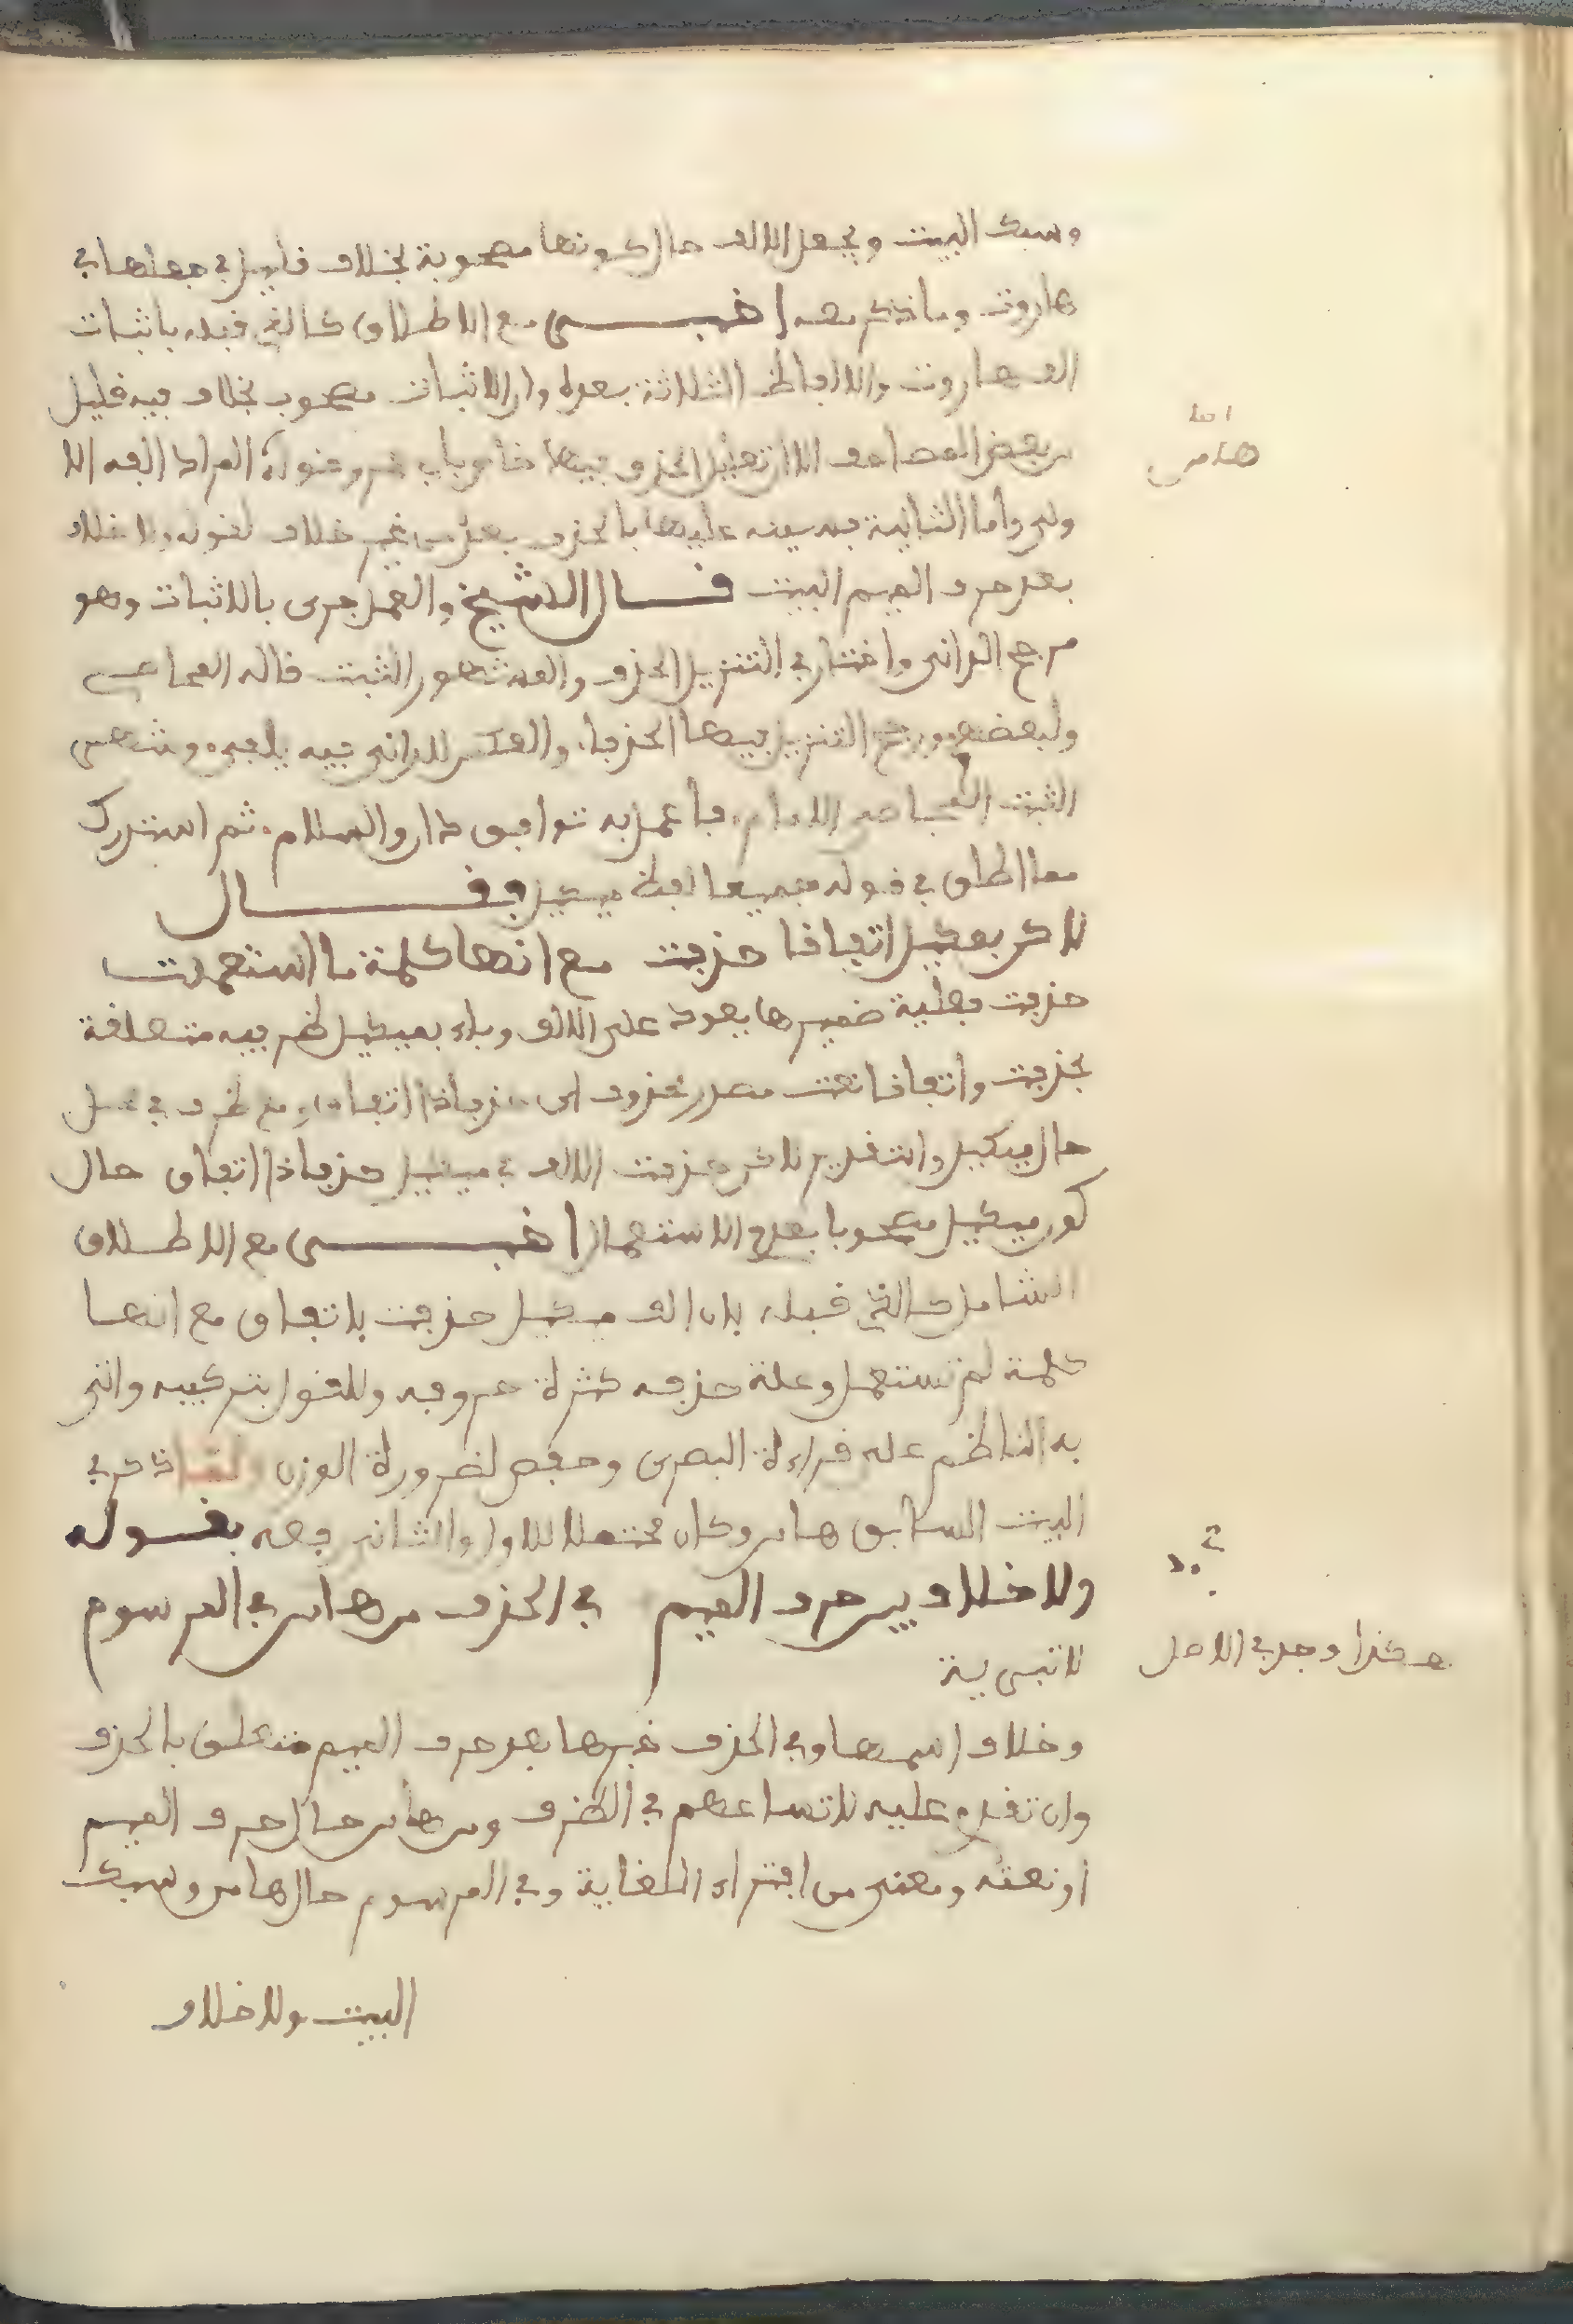 وسبك البيت ويجعل الالف حال كونها مصحوبة بخلاف قليل في جعلها في
هاروت وما ذكر معه اخبـــر مع الاطلاق كالذي قبله باثبات
الف هاروت والالفاظ الثلاثة بعده وان الاثبات مصحوب بخلاف فيه قليل
من بعض المصاحف الا ان تقليل الحذف فيها المراد الفه الا
ولى واما الثانية فسينه عليها بالحذف بعد من غير خلاف لقوله ولا خلاف
بعد حرف الميم البيت قـــال الشيخ والعمل جرى بالاثبات وهو
مرجح الداني واختار في التنزيل الحذف والمشهور الثبت قاله المجاصي
ولبعضهم ورجح التنزيل فيها الحذفا والعكس للداني فيه يلفى وشهر
الثبت المجاصي الامام فاعمل به توافق دار والسلام ثم استدرك
مما اطلق في قوله جميعا لفظ ميكيل فقـــال
لاكن بميكيل اتفاقا حذفت مع انها كلمة ما استعملت
حذفت فعلية ضميرها يعود على الالف وباء بميكيل ظرفيه متعلقة
بحذفت واتفاقا نعت مصدر محذوف اى حذفا ذا اتفاق ومع ظرف في محل
حال ميكيل والتقدير لاكن حذفت الالف في ميكيل حذفا ذا اتفاق حال
كون ميكيل مصحوبا بعدم الاستعمال اخبـــر مع الاطلاق
الشامل كالذي قبله بان الف ميكيل حذفت باتفاق مع انها
كلمة لم تستعمل وعلة حذفه كثرة حروفه وللقول بتركيبه واتى
به الناظم على قراءة البصرى وحفص لضرورة الوزن ولما ذكر في
البيت السابق هامن وكان محتملا للاول والثاني رفعه بقـوله
ولا خلاف بعد حرف الميم في الحذف من هامن في المرسوم
لا تبرية
وخلاف اسمها وفي الحذف خبرها بعد حرف الميم متعلق بالحذف
وان تقدم عليه لاتساعهم في الظرف ومن هامن حال حرف الميم
او نعته ومعنى من ابتداء الغاية وفي المرسوم حال هامن وسبك
البيت ولا خلاف
هامن
هكذا وجد في الاصل